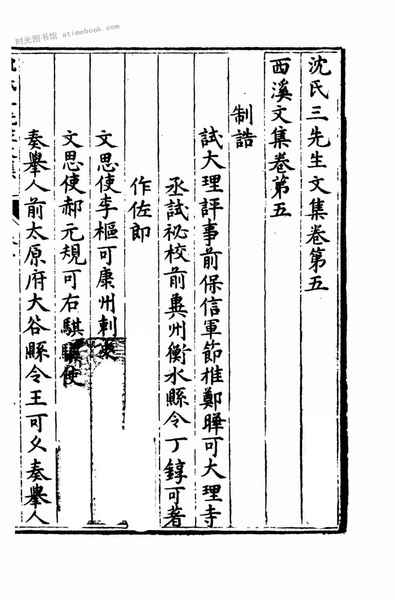 时光图书馆 atimebook.com
沈氏三先生文集卷第五
西溪文集卷第五
制誥
試大理評事前保信軍節推鄭曄可大理寺
丞試祕校前冀州衡水縣令丁錞可著
作佐郎
文思使李樞可康州刺史
文思使郝元規可右騏驥使
奏舉人前太原府大谷縣令王可久奏舉人